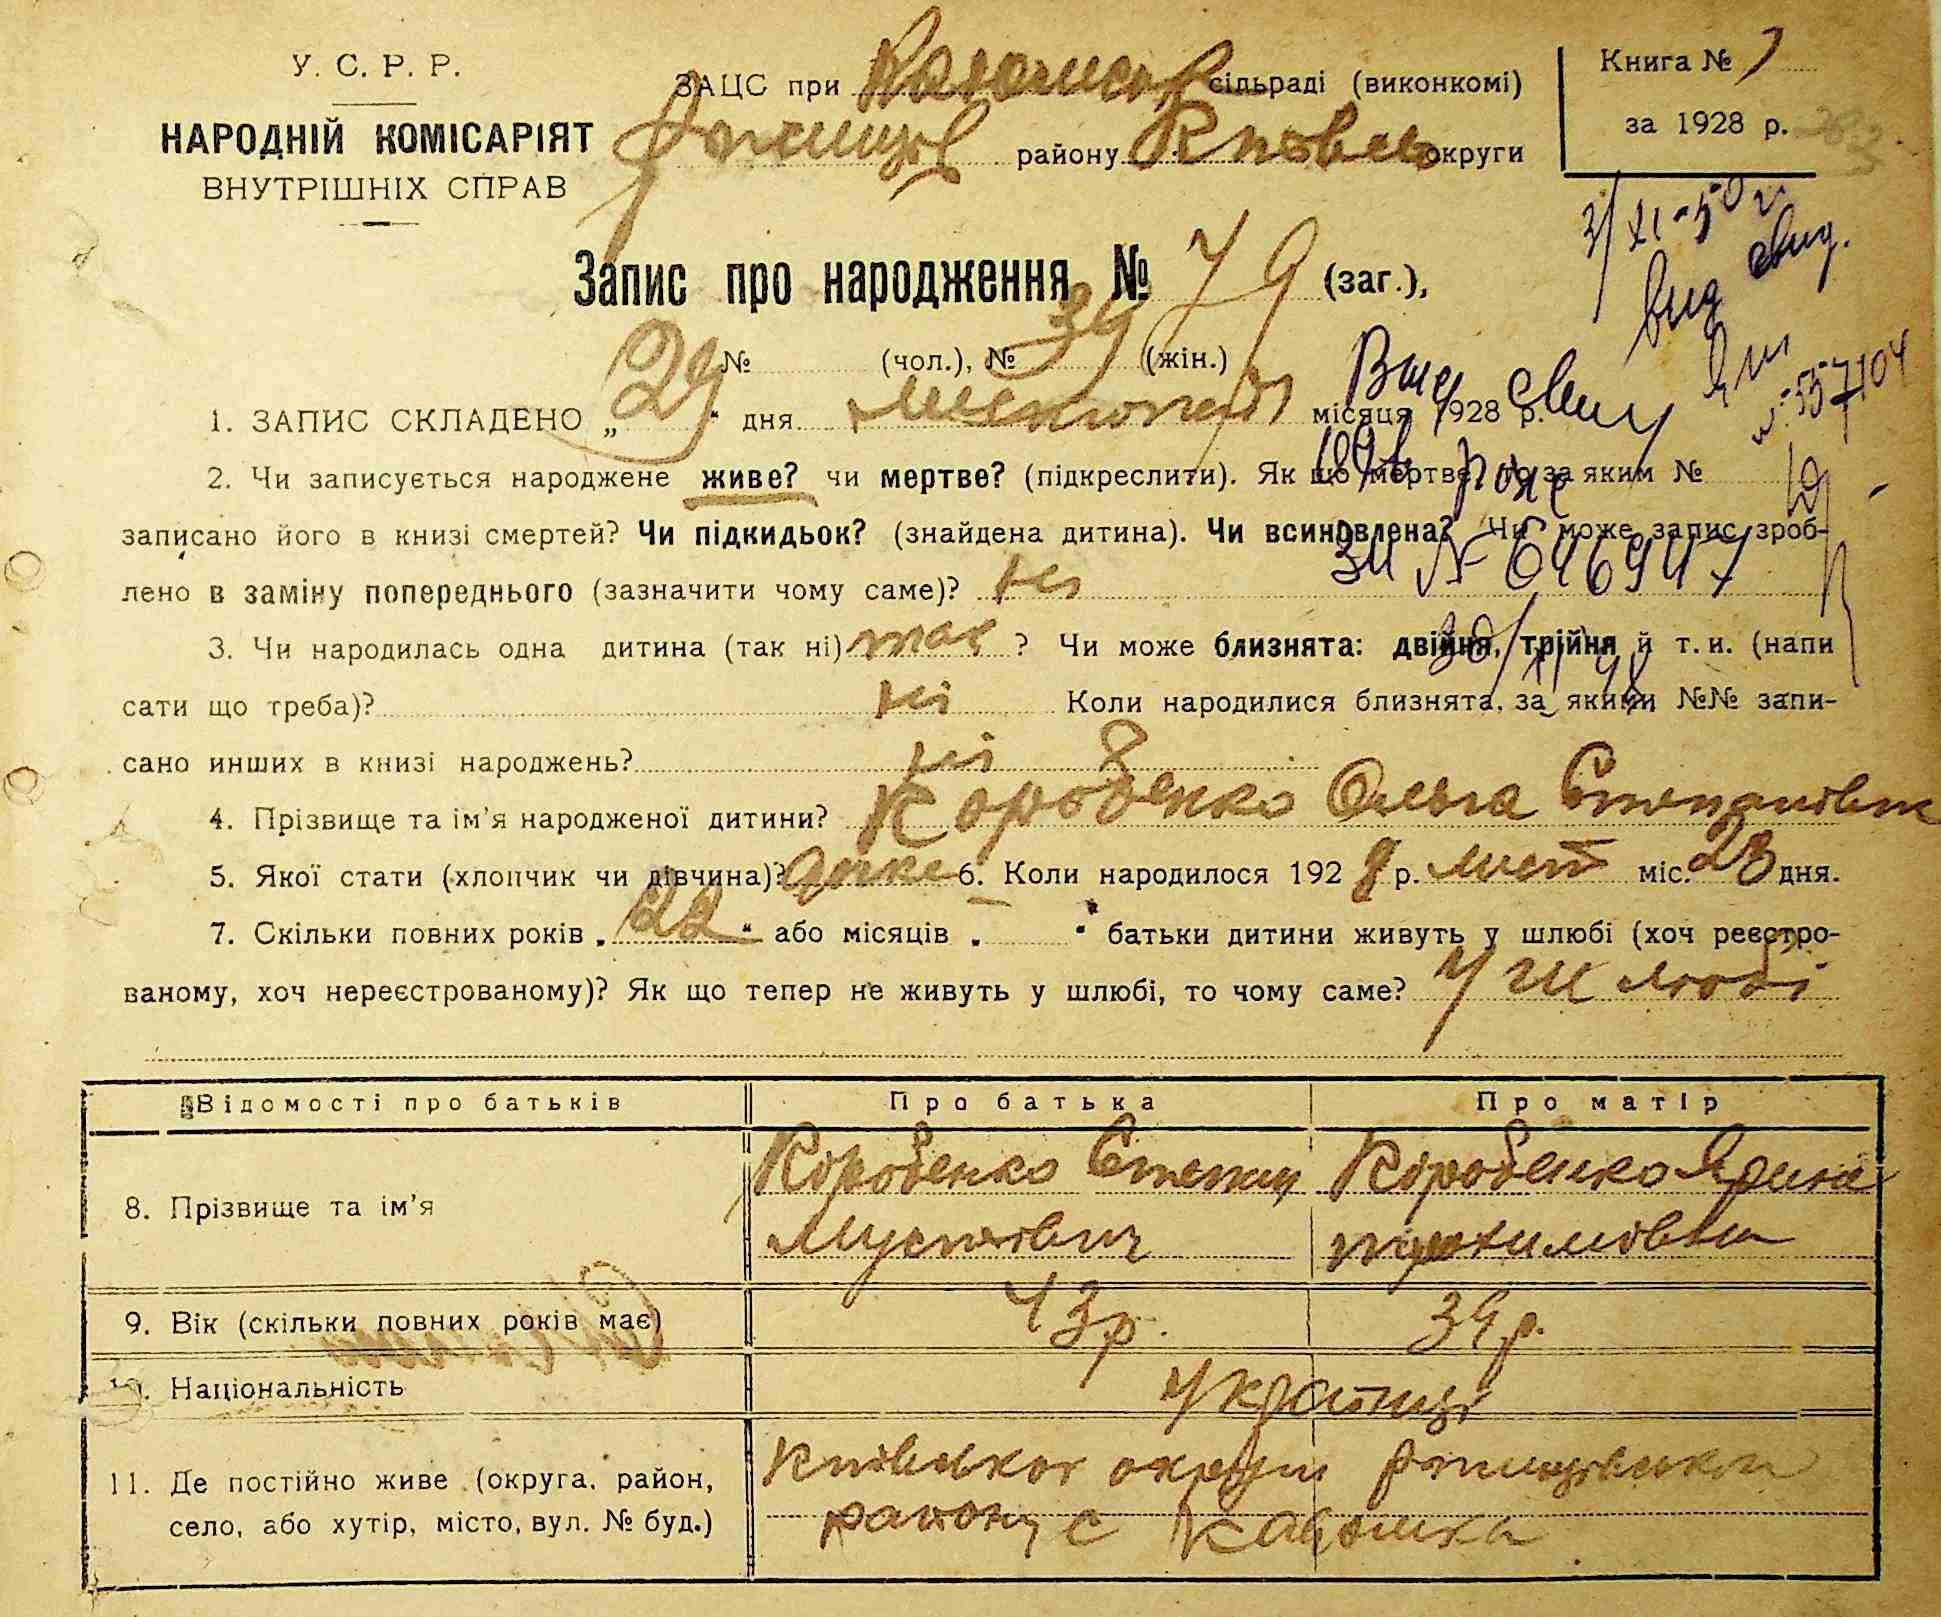 У. С. Р. Р.
НАРОДНІЙ КОМІСАРІЯТ
ВНУТРІШНІХ СПРАВ
ЗАЦС при сільраді (виконкомі)
району округи
Книга № 1
за 1928 р.
Запис про народження № 79 (заг.),
№ (чол.), № 39 (жін.)
1. ЗАПИС СКЛАДЕНО „29“ дня місяця 1928 р.
2. Чи записується народжене живе? чи мертве? (підкреслити). Як що мертве, то за яким №
записано його в книзі смертей? Чи підкидьок? (знайдена дитина). Чи всиновлена? Чи може запис зроб-
лено в заміну попереднього (зазначити чому саме)? ні
3. Чи народилась одна дитина (так ні) так ? Чи може близнята: двійня, трійня й т.и. (напи
сати що треба)? ні Коли народилися близнята, за якими №№ запи-
сано инших в книзі народжень? ні
4. Прізвище та ім’я народженої дитини? Коробенко Ольга Степановна
5. Якої стати (хлопчик чи дівчина)? 6. Коли народилося 1928 р. лист міс. 23 дня.
7. Скільки повних років „22“ або місяців „ “ батьки дитини живуть у шлюбі (хоч реєстро-
ваному, хоч нереєстрованому)? Як що тепер не живуть у шлюбі, то чому саме? У шлюбі
Вид свид
зи № 646947
30/XI 48
3/XI-50 г
вид свид.
№ 557104
Відомості про батьків Про батька Про матір
8. Прізвище та ім’я Коробенко Степан Коробенко Ярина
9. Вік (скільки повних років має) 43 р. 39 р.
10. Національність українці
11. Де постійно живе (округа, район, Київської округи
село, або хутір, місто, вул. № буд.) району с